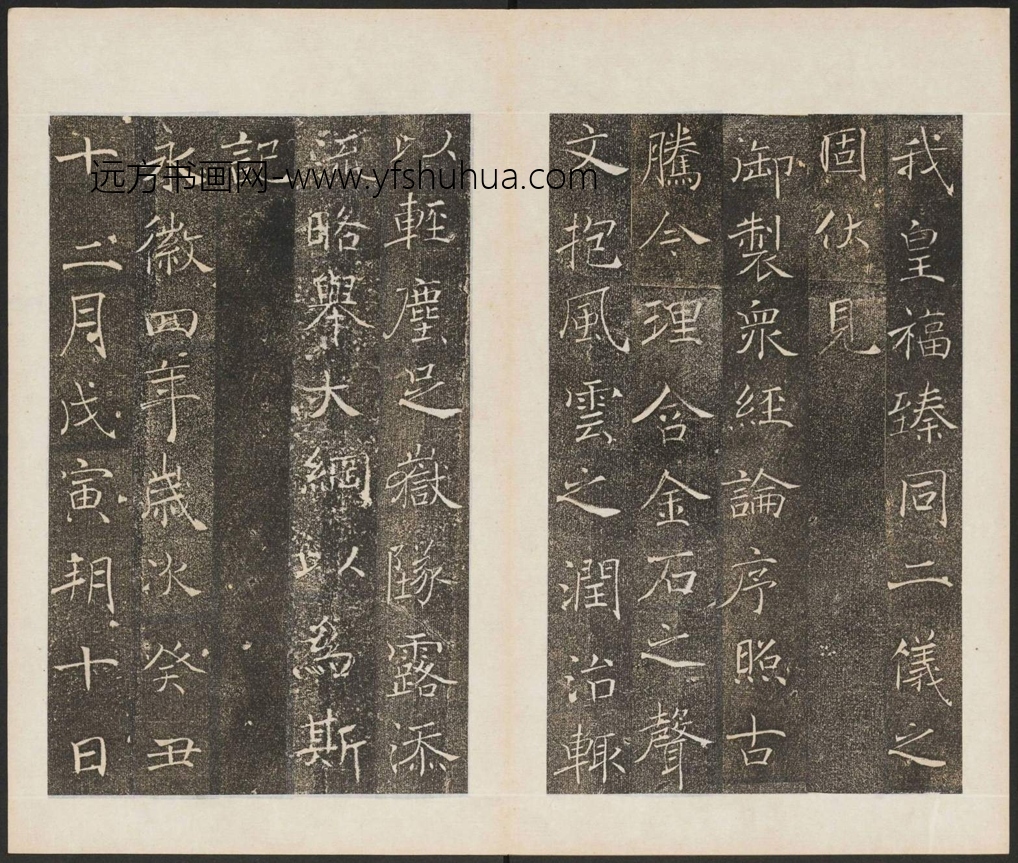 我皇福臻同二儀之
固伏見
御製衆經論序照古
騰今理含金石之聲
文抱風雲之潤治輙
以輕塵足嶽隊露添
流略舉大綱以為斯
記
永徽四年歲次癸丑
十二月戊寅朔十日
远方书画网-www.yfshuhua.com